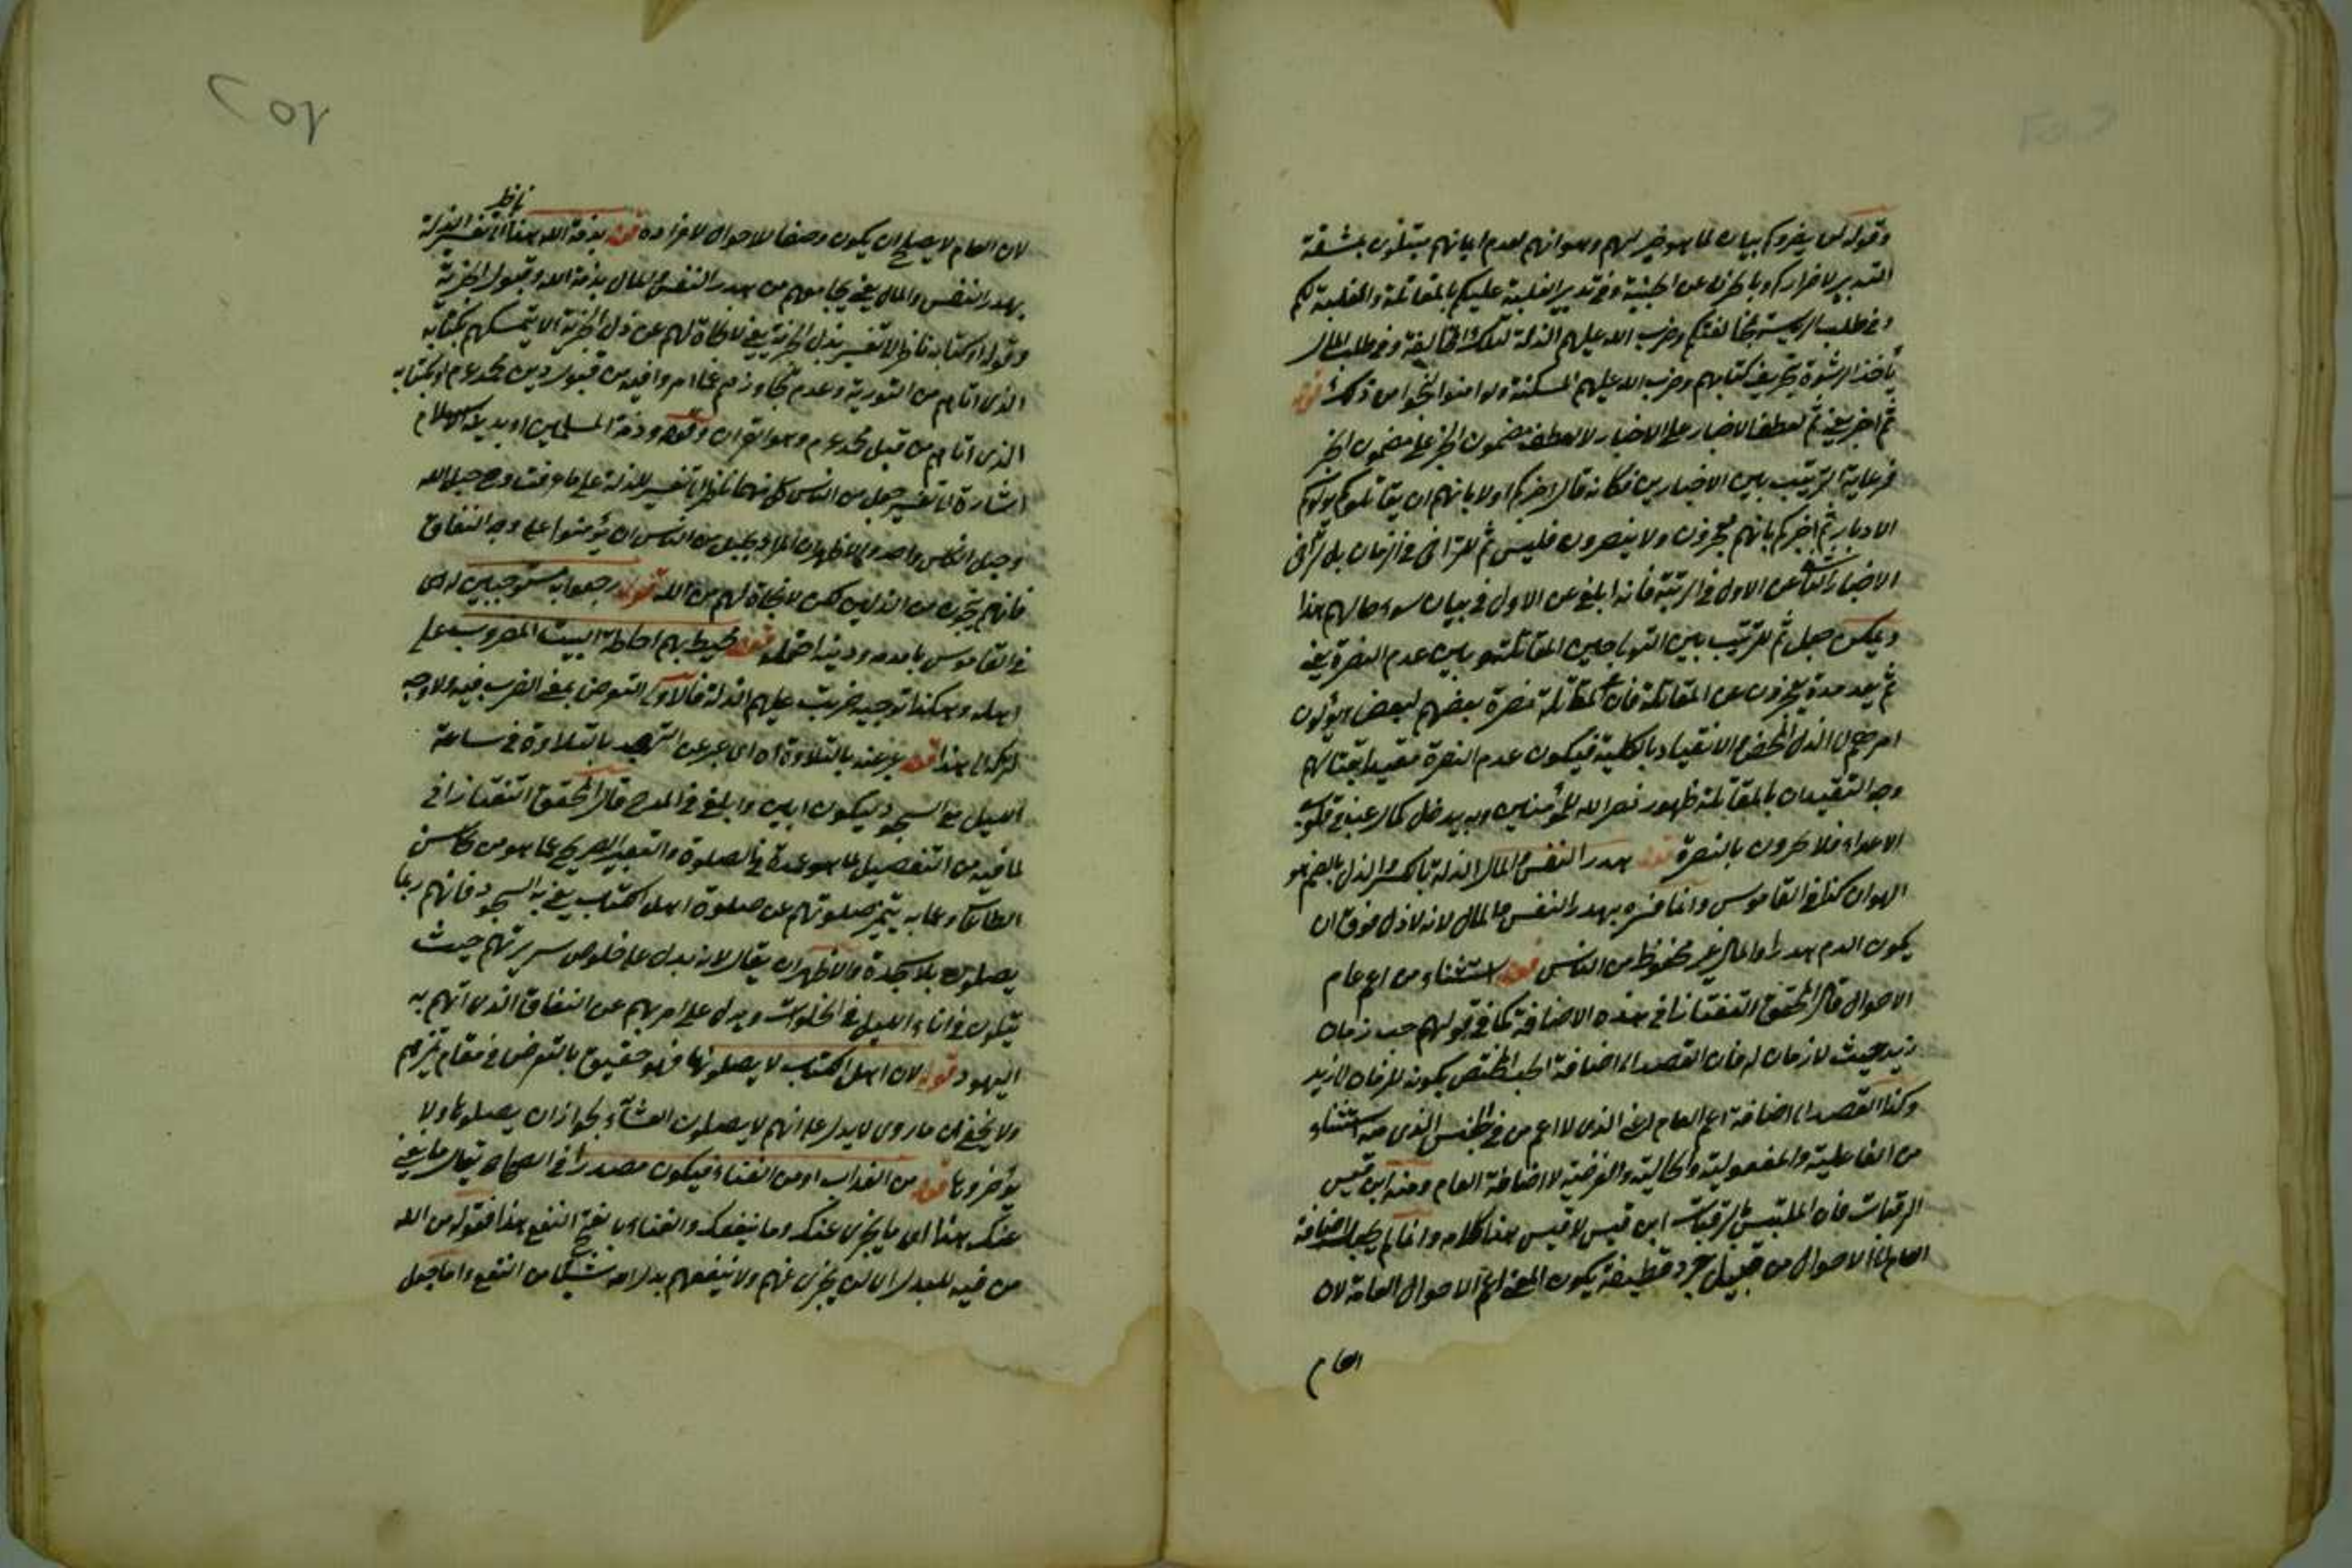 وقوله لن يضروكم بيان لما هو خير لهم وهوانهم لعدم ايمانهم مبتلون بمشقة
التدبير لاضراركم وبالحزن عن الخيبة وفي تدبير الغلبة عليكم بالمقاتلة والمغلبة لكم
وفي طلب الرياسة بمخالفتكم وضرب الله عليهم الذلة لتلك المخالفة وفي طلب المال
بأخذ الرشوة بتحريف كتابهم وضرب الله عليهم المسكنة ولو امنوا لنجوا من ذلك قوله
ثم اخبر يعني ثم لعطف الاخبار على الاخبار لا لعطف مضمون الخبر على مضمون الخبر
فرعاية الترتيب بين الاخبارين فكانه قال اخبركم اولا بانهم ان يقاتلوكم يولوكم
الادبار ثم اخبركم بانهم يعجزون ولا ينصرون فليس ثم للتراخي في الزمان بل لتراخي
الاخبار الثاني عن الاول في الرتبة فانه ابلغ من الاول في بيان سوء حالهم هذا
ويمكن جعل ثم للترتيب بين المقاتلة وبين عدم النصرة يعني
ثم بعد مدة يعجزون عن المقاتلة فان المقاتلة نصرة بعضهم لبعض ويؤلون
امرهم الى الذل المحض والانقياد بالكلية فيكون عدم النصرة مقيدا بقتالهم
وجه التقييدان بالمقاتلة ظهور نصر الله للمؤمنين وبه يدخل كمال رعبة في قلوب
الاعداء فلا يكرون بالنصرة قوله هدر النفس والمال الذلة بالكسر والذل بالضم هو
الهوان كذا في القاموس وانما فسره بهدر النفس والمال لانه لا ذل فوق ان
يكون الدم هدرا والمال غير محفوظ من الناس قوله استثناء من اعم عام
الاحوال قال المحقق التفتازاني هذه الاضافة كما في قولهم حب رمان
زيد حيث لا رمان له فان القصد الى اضافة الحب المختص بكونه للرمان الى زيد
وكذا القصد الى اضافة اعم العام اعني الذي لا اعم منه في الجنس الذي منه الاستثناء
من الفاعلية والمفعولية والحالية والغرضية لا اضافة العام ومنه ابن قيس
الرقيات فان الملتبس بالرقيات ابن قيس لا قيس هذا كلامه وانما لم يجعل اضافة
العام الى الاحوال من قبيل جرد قطيفة ليكون المعنى اعم الاحوال العامة لان
العام
٢٥٢
ناظر
لان العام لا يصلح ان يكون وصفا للاحوال لافراده قوله بذمة الله هذا الى تفسير الذلة
بهدر النفس والمال يعني نجاتهم من هدر النفس والمال بذمة الله وقبول الجزية
وقوله او كتابه ناظر الى تفسير بذل الجزية يعني لا نجاة لهم عن ذل الجزية الا بتمسكهم بكتابه
الذي اتاهم من التورية وعدم تجاوزهم عما امروا فيه من قبول دين محمد عم او بكتابه
الذي اتاهم من قبل محمد عم وهو القران وقوله وذمة المسلمين او بدين الاسلام
اشارة الى تفسير حبل من الناس كل منهما ناظر الى تفسير للذلة على ما عرفت وجعل حبل الله
وحبل الناس واحد والاظهر ان المراد بحبل من الناس ان يؤمنوا على وجه النفاق
فانهم ينجون من الذلين لكن لا نجاة لهم من الله قوله رجعوا به مستوجبين له اي
في القاموس باء بدمه وبذنبه احتمله قوله محيط بهم احاطة البيت المضروب على
اهله وهكذا توجيه ضربت عليهم الذلة فالاولى التعرض بمعنى الضرب فيه ولا وجه
لتركه الى هذا قوله عبر عنه بالتلاوة اه اي عبر عن التهجد بالتلاوة في ساعة
الليل مع السجود ليكون ابين وابلغ في المدح قال المحقق التفتازاني
لما فيه من التفصيل لما هو عمدة في الصلوة والتعبير الصريح بما هو من محاسن
الطاعات وبما به يتميز صلوتهم عن صلوة اهل الكتاب يعني به السجود فانهم ربما
يصلون بلا سجدة والاظهر ان يقال لانه يدل على خلوص سريرتهم حيث
يتلون في اناء الليل في الخلوات ويدل على امرهم عن النفاق الذي اتهم به
اليهود قوله لان اهل الكتاب لا يصلونها فهو حقيق بالتعرض في مقام تميزهم
ولا يخفى ان ما روى لا يدل على انهم لا يصلون العشاء لجواز ان يصلوها ولا
يؤخروها قوله من العذاب او من الغناء فيكون مصدرا في الصحاح يقال ما يغني
عنك هذا اي ما يجزى عنك وما ينفعك والغناء بالفتح النفع هذا فقوله من الله
من فيه للبدل اي لن يجزى عنهم ولا ينفعهم بدل الله شيئا من النفع واما جعل